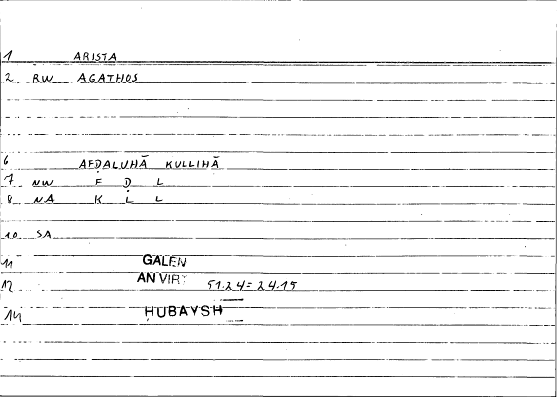 1 ARISTA
2 RW AGATHOS
6 AFḌALUHĀ KULLIHĀ
7 NW F Ḍ L
8 NA K L L
10 SA
11 GALEN
12 AN VIRT 51.24=24.15
14 ḤUBAYSH